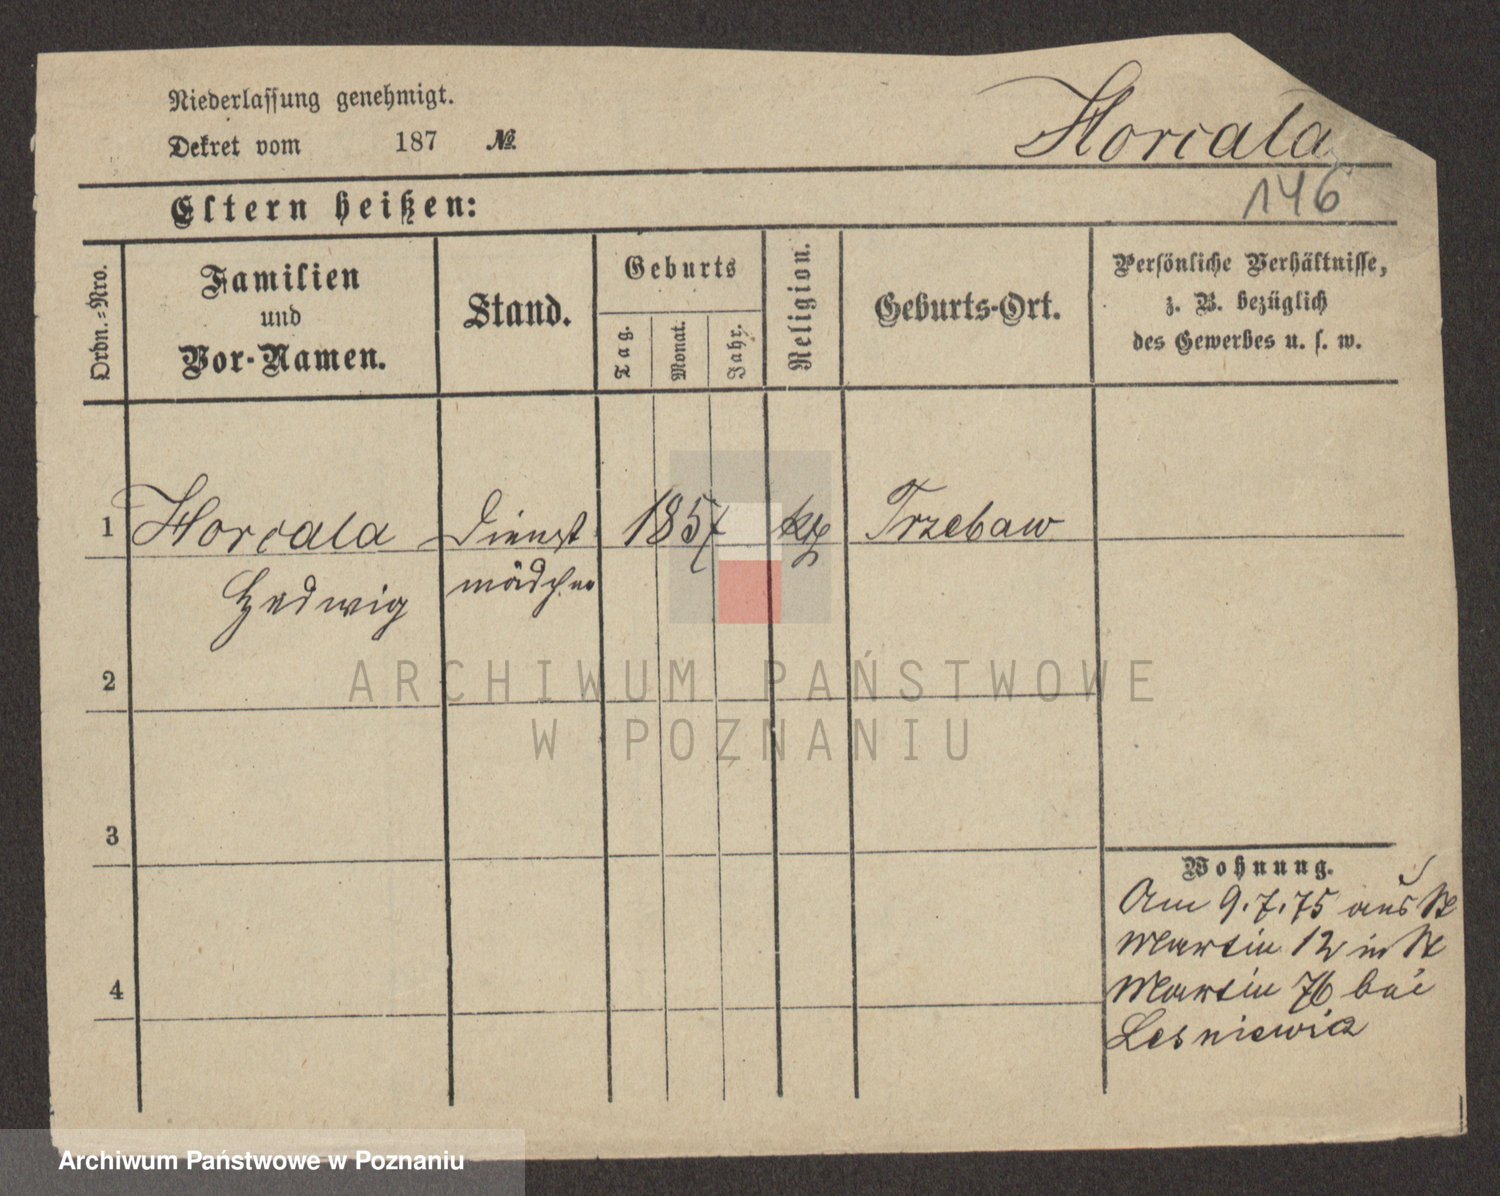 Niederlassung genehmigt.
Dekret vom 187 №
Horcala
146
Eltern heißen:
Ordn.-Nro.
Familien
und
Vor-Namen.
Stand.
Geburts
Tag.
Monat.
Jahr.
Religion.
Geburts-Ort.
Persönliche Verhältnisse,
z. B. bezüglich
des Gewerbes u. s. w.
1 Horcala Dienst 1857 kth Trzebaw
Hedwig mädchen
2
3
4
Wohnung.
Am 9.7.75 aus St
Martin 12 in St
Martin 76 bei
Lesniewicz
ARCHIWUM PAŃSTWOWE
W POZNANIU
Archiwum Państwowe w Poznaniu